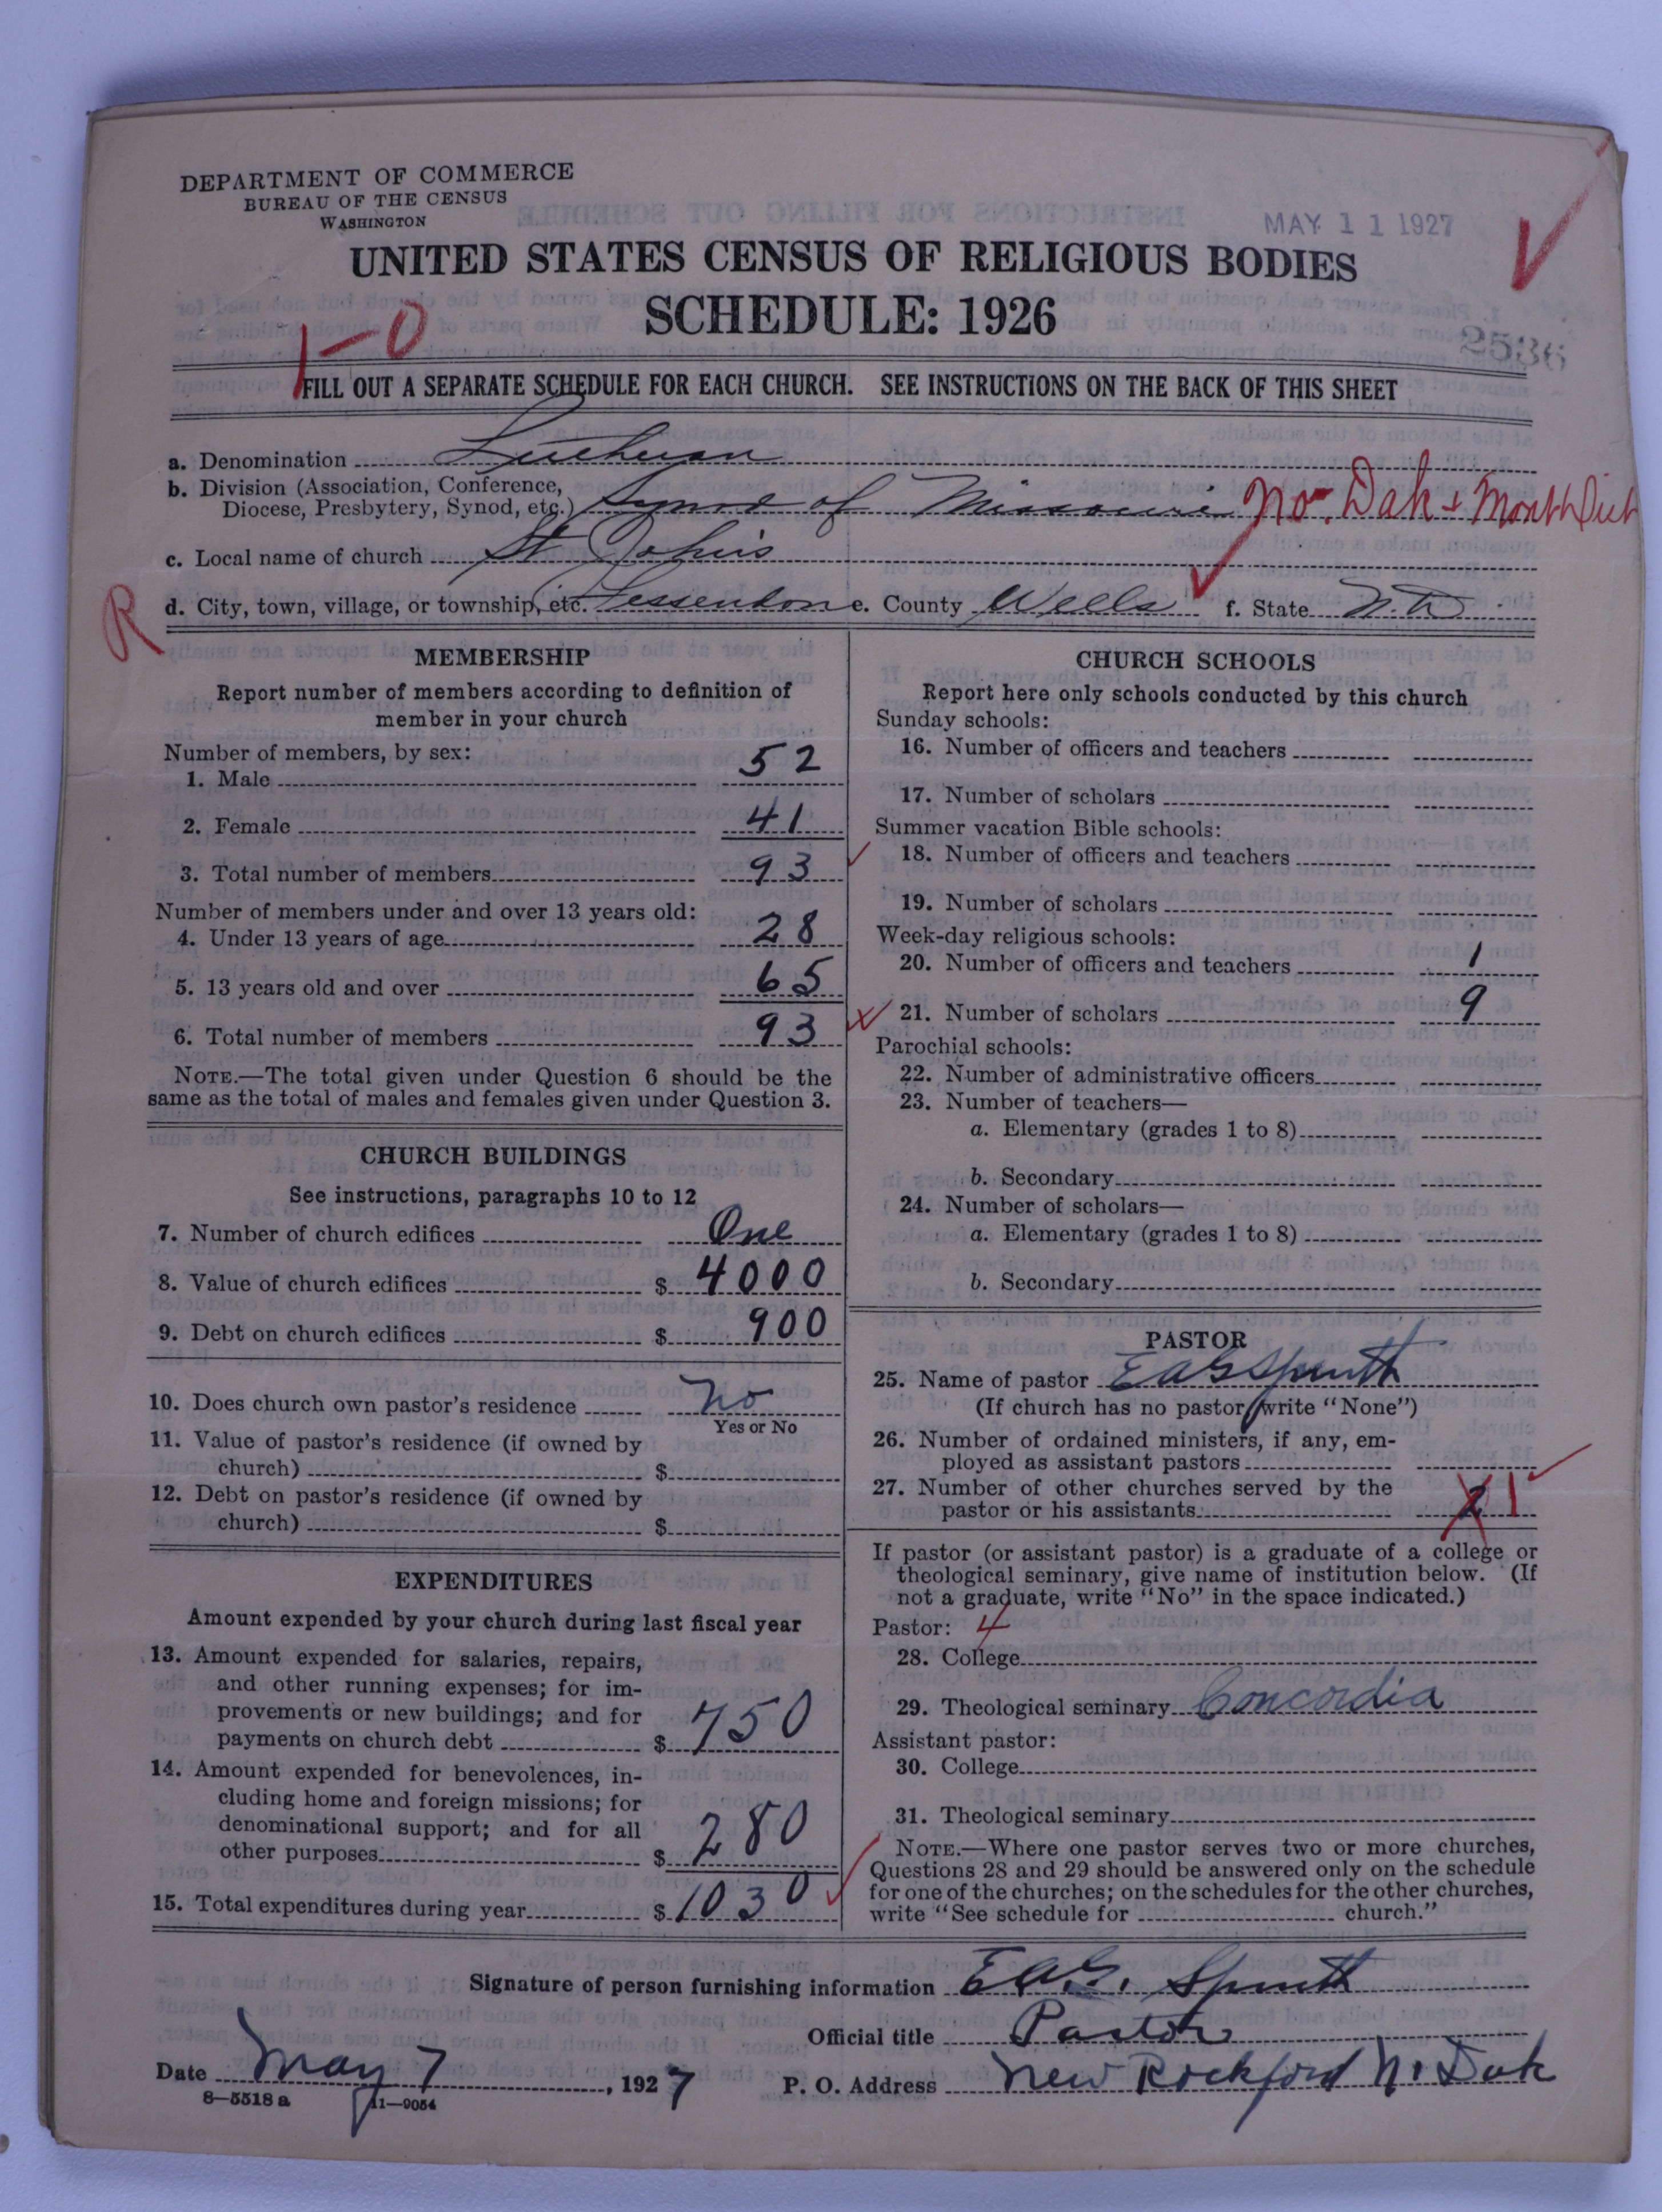 DEPARTMENT OF COMMERCE
BUREAU OF THE CENSUS
WASHINGTON
MAY 11 1927
UNITED STATES CENSUS OF RELIGIOUS BODIES
SCHEDULE: 1926
1-0
2536
FILL OUT A SEPARATE SCHEDULE FOR EACH CHURCH. SEE INSTRUCTIONS ON THE BACK OF THIS SHEET
a. Denomination Lutheran
b. Division (Association, Conference,
Diocese, Presbytery, Synod, etc.) Synod of Missouri No. Dak & Mont Dist
c. Local name of church St Johns
R
d. City, town, village, or township, etc. Fessenden e. County Wells f. State N.D.
MEMBERSHIP
Report number of members according to definition of
member in your church
Number of members, by sex:
1. Male 52
2. Female 41
3. Total number of members 93
Number of members under and over 13 years old:
4. Under 13 years of age 28
5. 13 years old and over 65
6. Total number of members 93
NOTE.—The total given under Question 6 should be the
same as the total of males and females given under Question 3.
CHURCH BUILDINGS
See instructions, paragraphs 10 to 12
7. Number of church edifices One
8. Value of church edifices $ 4000
9. Debt on church edifices $ 900
10. Does church own pastor's residence No
Yes or No
11. Value of pastor's residence (if owned by
church) $
12. Debt on pastor's residence (if owned by
church) $
EXPENDITURES
Amount expended by your church during last fiscal year
13. Amount expended for salaries, repairs,
and other running expenses; for im-
provements or new buildings; and for
payments on church debt $ 750
14. Amount expended for benevolences, in-
cluding home and foreign missions; for
denominational support; and for all
other purposes $ 280
15. Total expenditures during year $ 1030
CHURCH SCHOOLS
Report here only schools conducted by this church
Sunday schools:
16. Number of officers and teachers
17. Number of scholars
Summer vacation Bible schools:
18. Number of officers and teachers
19. Number of scholars
Week-day religious schools:
20. Number of officers and teachers 1
21. Number of scholars 9
Parochial schools:
22. Number of administrative officers
23. Number of teachers—
a. Elementary (grades 1 to 8)
b. Secondary
24. Number of scholars—
a. Elementary (grades 1 to 8)
b. Secondary
PASTOR
25. Name of pastor EAG Spruth
(If church has no pastor write "None")
26. Number of ordained ministers, if any, em-
ployed as assistant pastors
27. Number of other churches served by the
pastor or his assistants 2 1
If pastor (or assistant pastor) is a graduate of a college or
theological seminary, give name of institution below. (If
not a graduate, write "No" in the space indicated.)
Pastor: 4
28. College
29. Theological seminary Concordia
Assistant pastor:
30. College
31. Theological seminary
NOTE.—Where one pastor serves two or more churches,
Questions 28 and 29 should be answered only on the schedule
for one of the churches; on the schedules for the other churches,
write "See schedule for church."
Signature of person furnishing information E.A.G. Spruth
Official title Pastor
Date May 7, 1927 P. O. Address New Rockford N. Dak
8—5518 a 11—9054